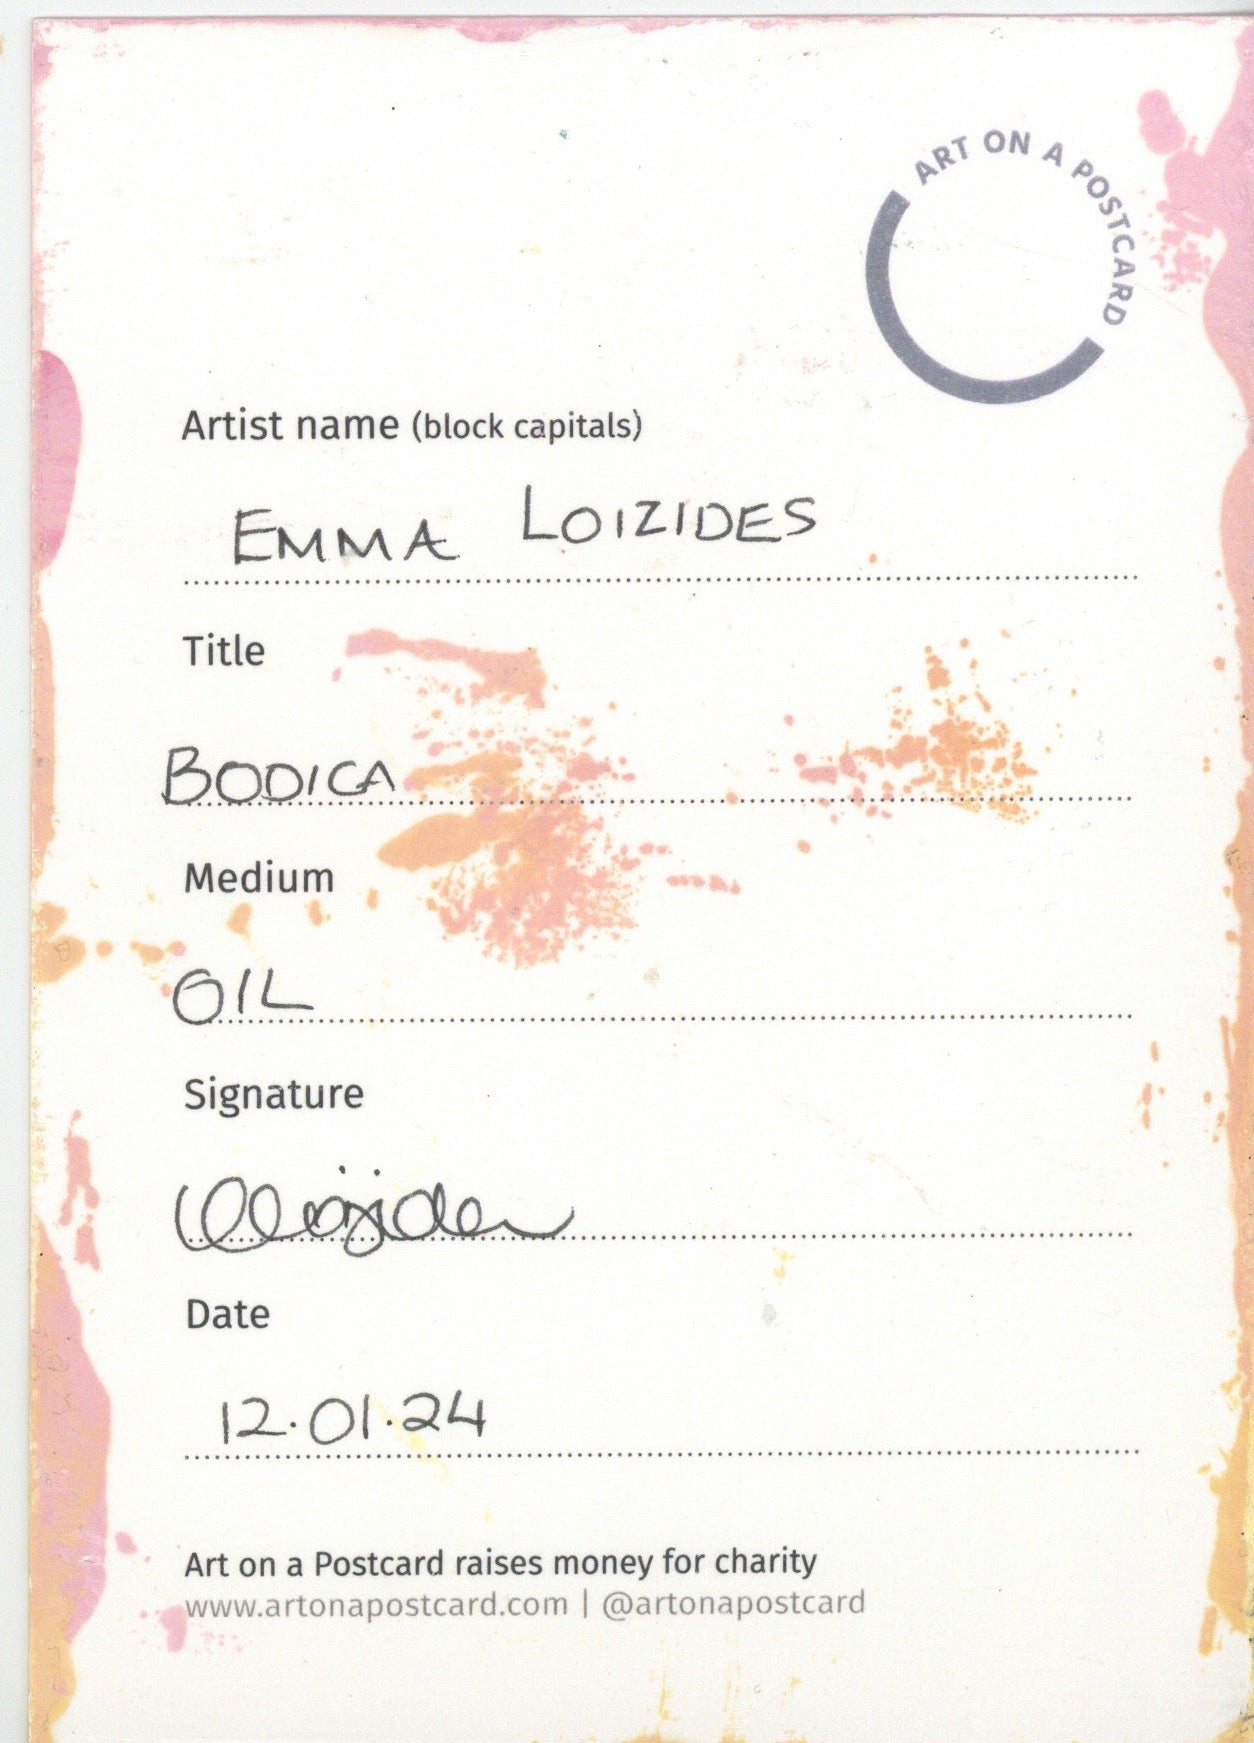 ART ON A POSTCARD
Artist name (block capitals)
EMMA LOIZIDES
Title
BODICA
Medium
OIL
Signature
Date
12.01.24
Art on a Postcard raises money for charity
www.artonapostcard.com | @artonapostcard